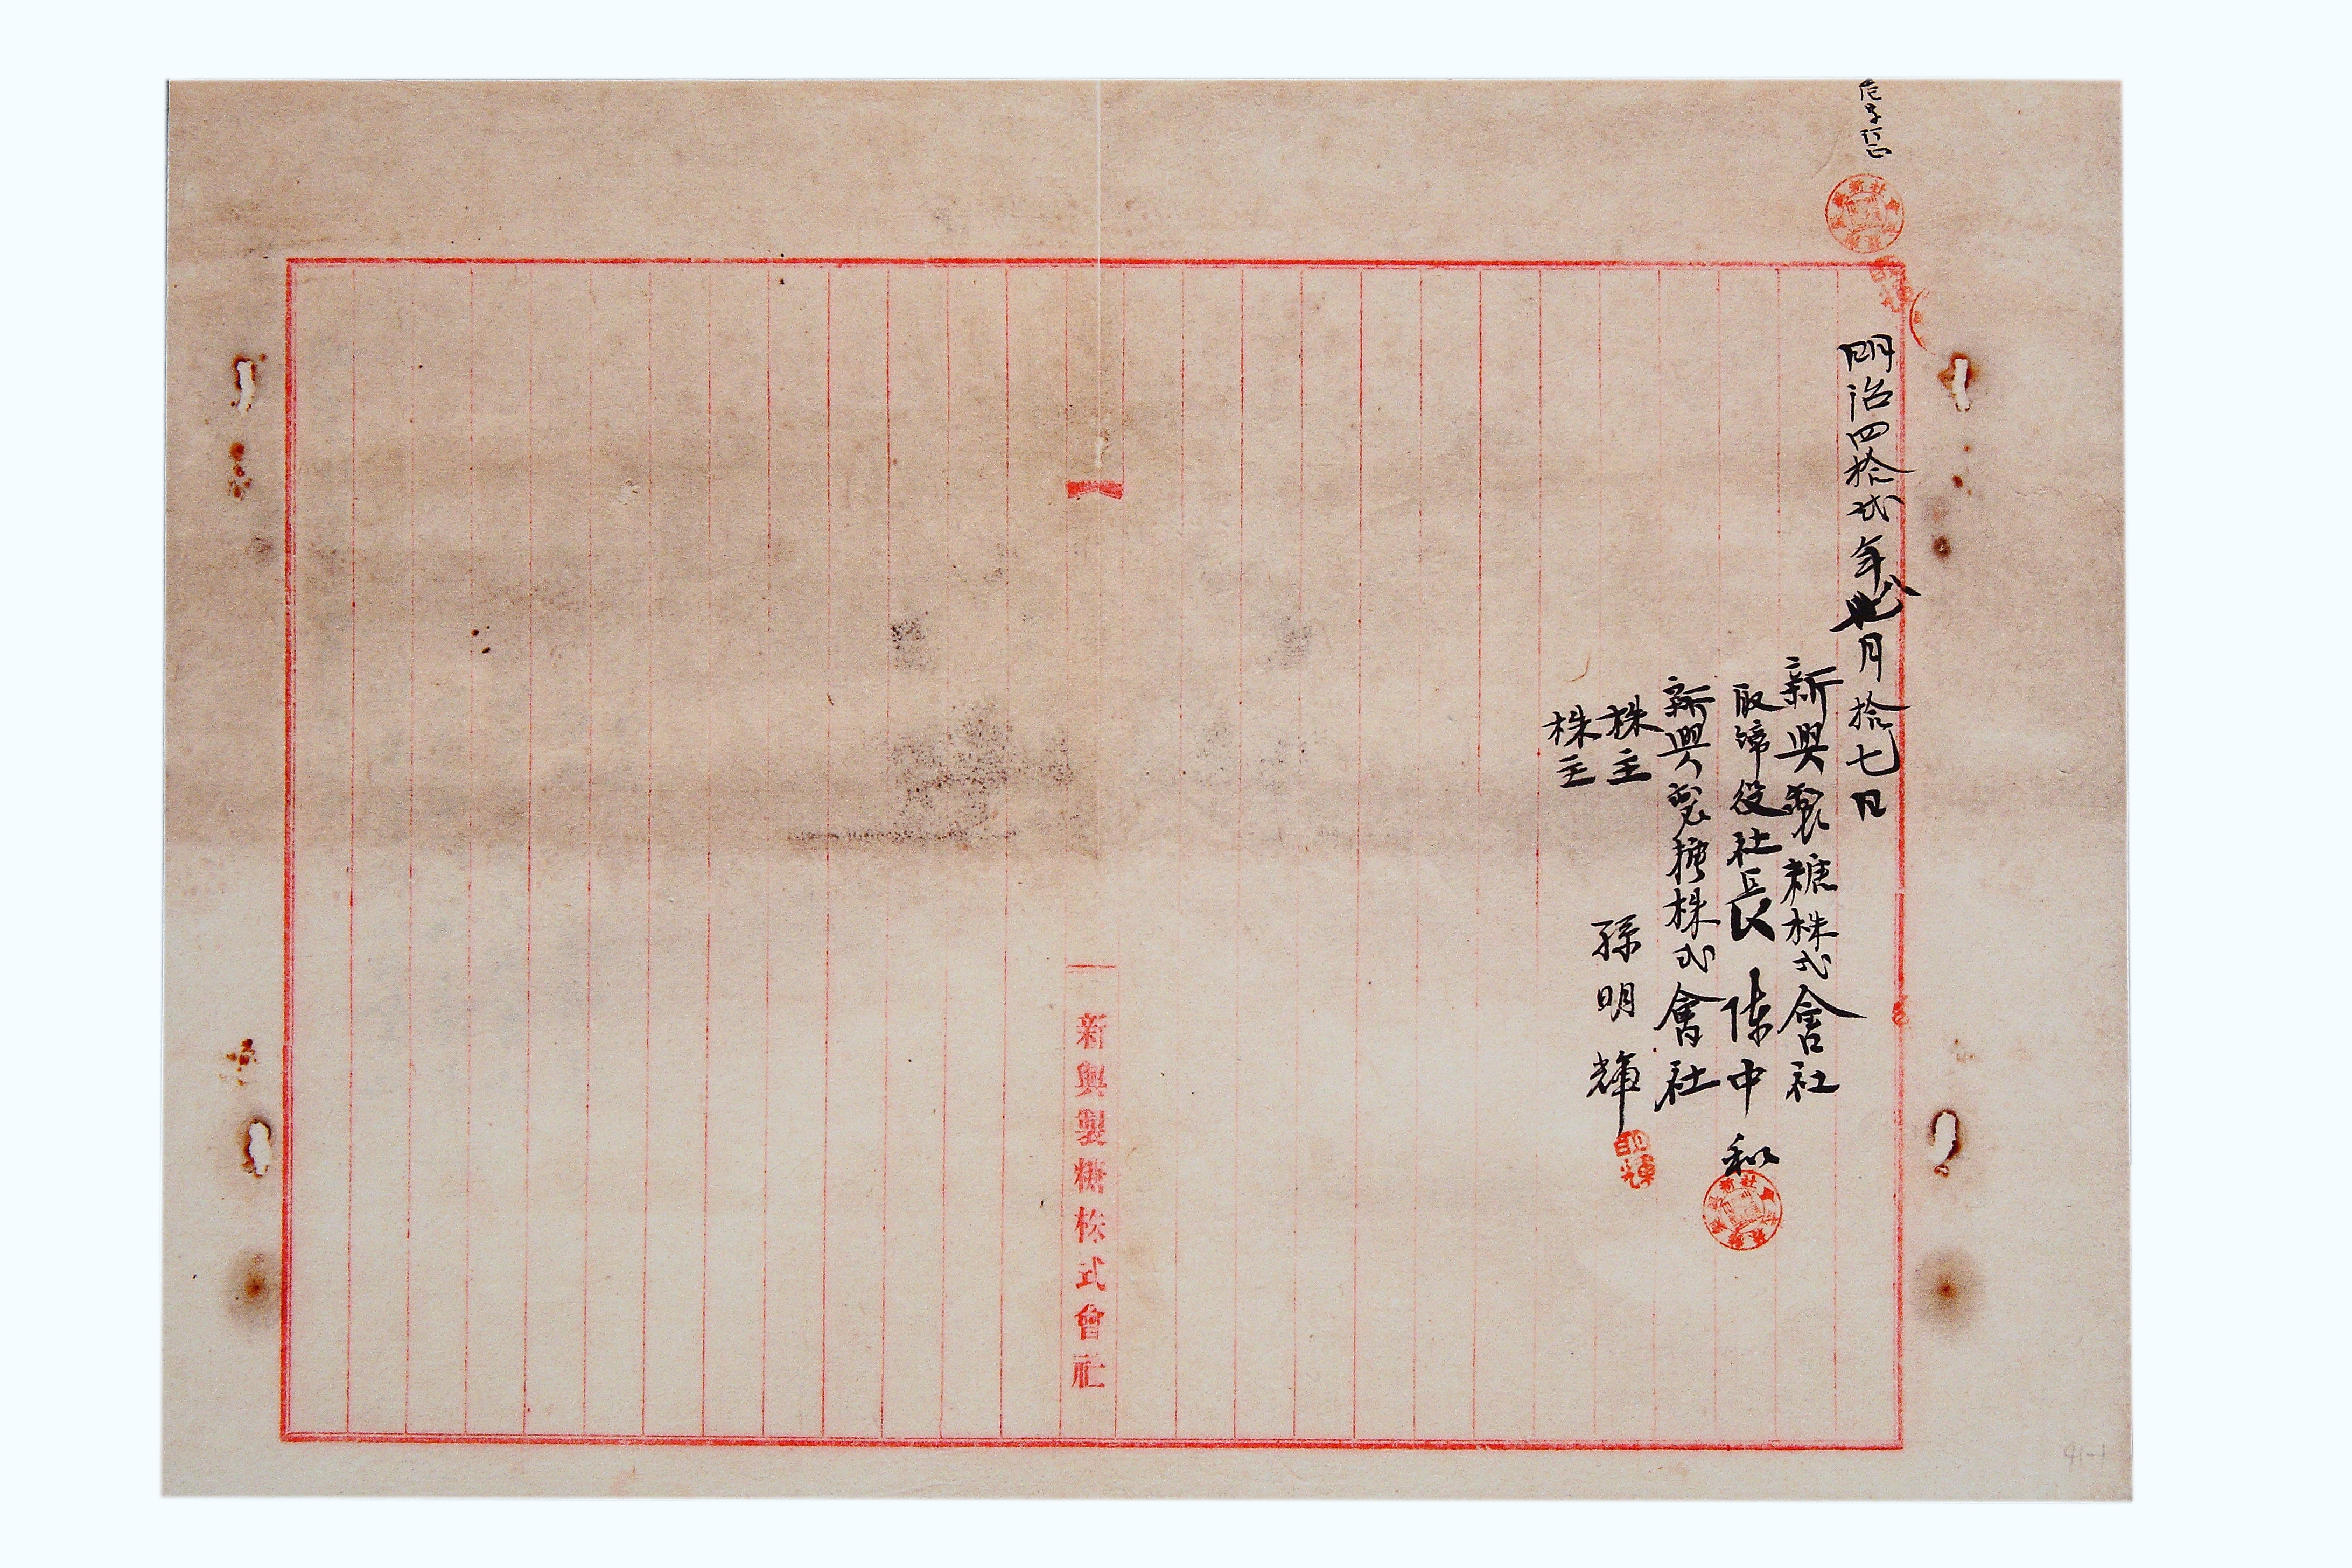 明治四拾弐年八月拾七日
新興製糖株式會社
取締役社長 陳中和
新興製糖株式會社
株主 孫明輝
株主
新興製糖株式會社
明輝
91-1